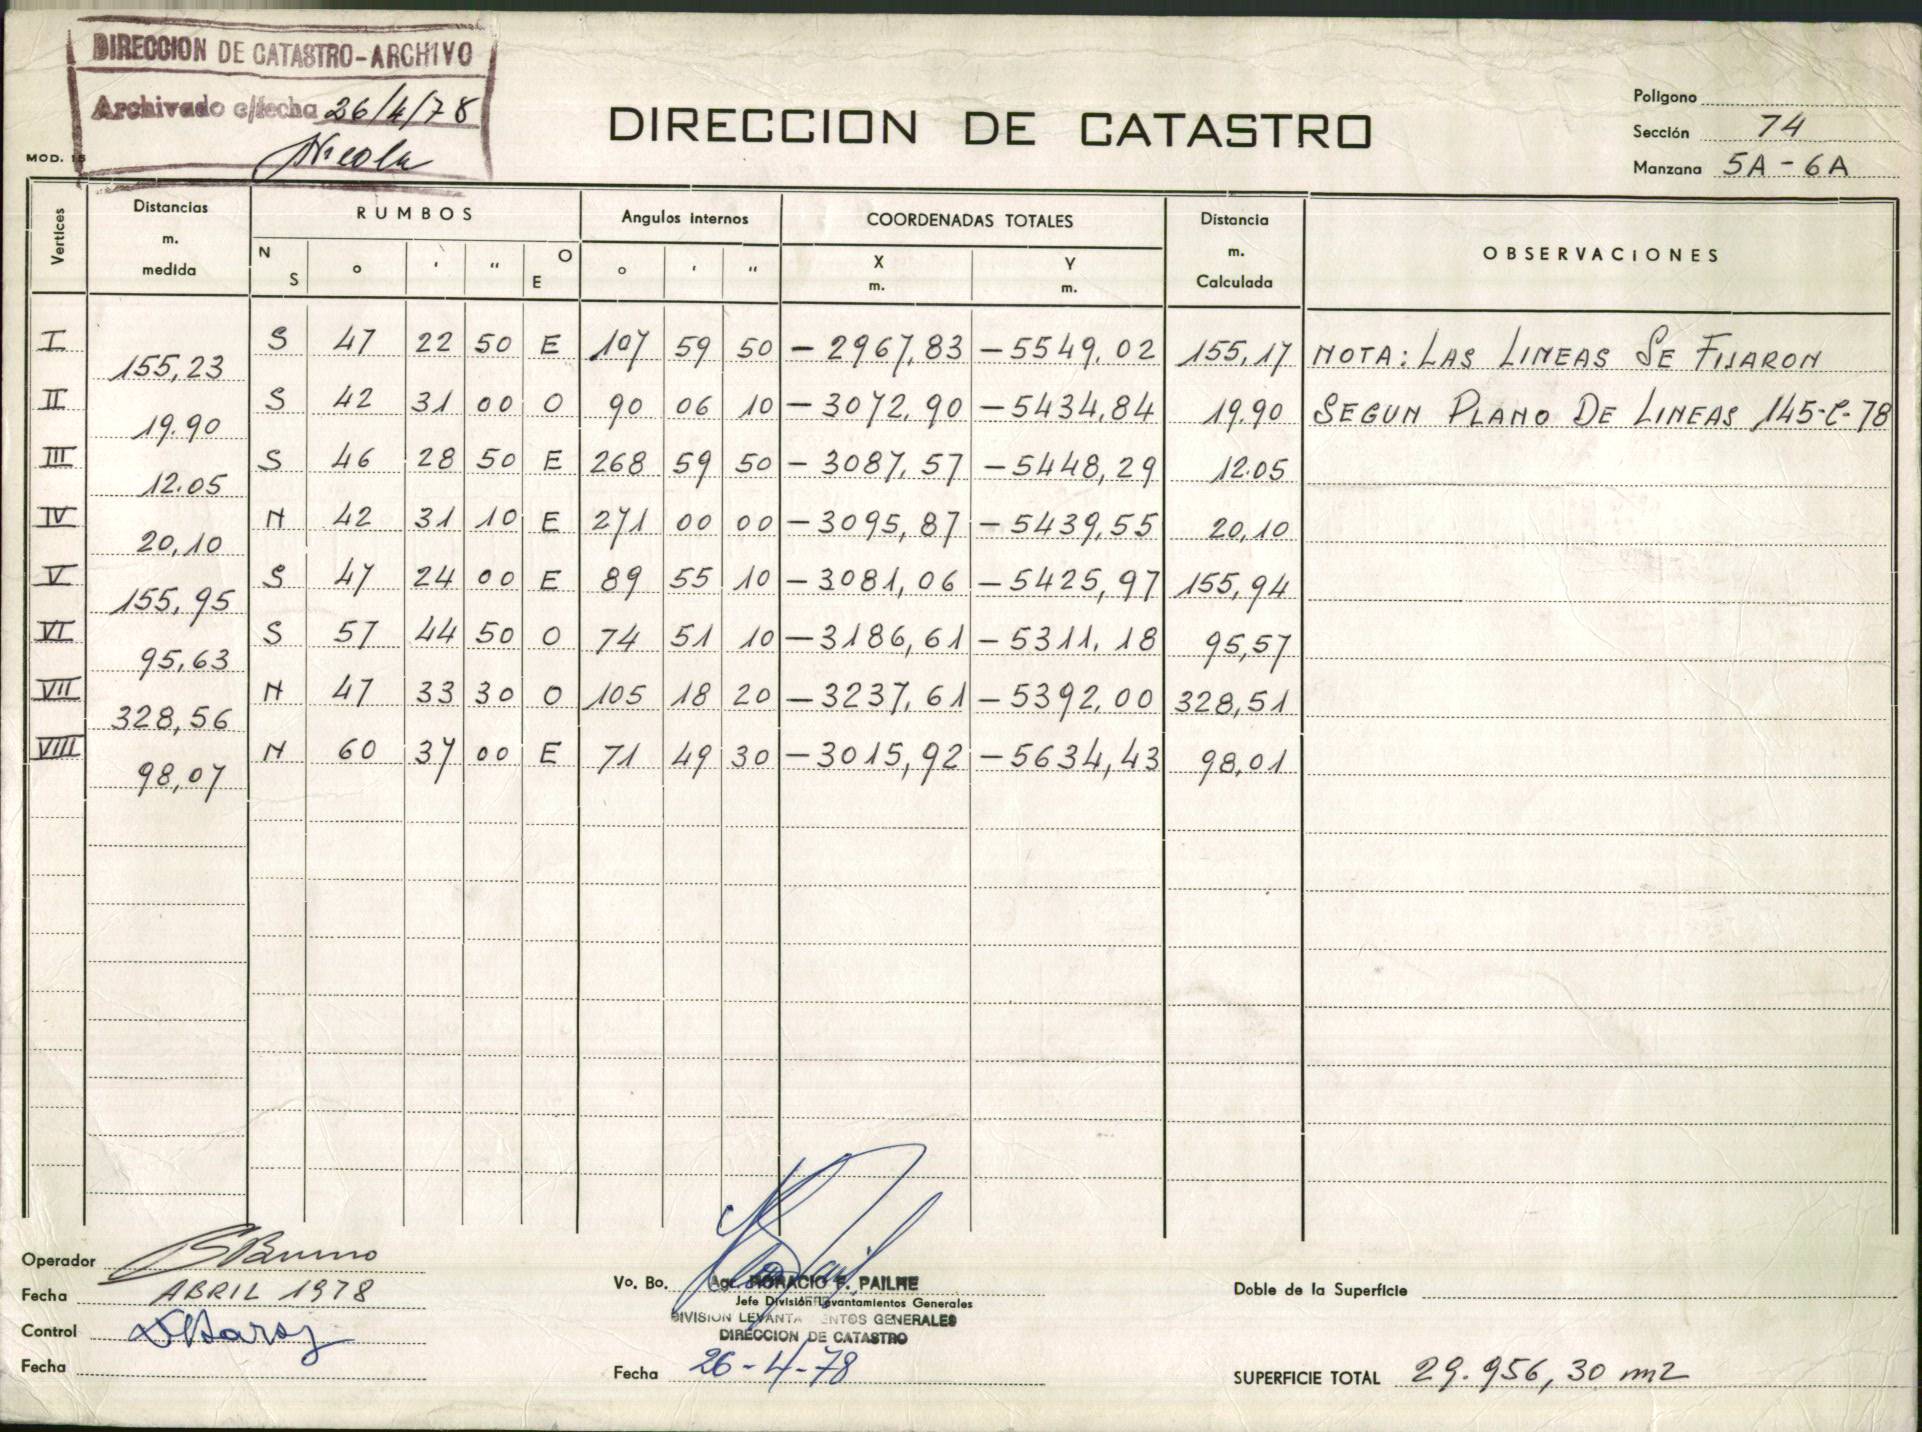 DIRECCION DE CATASTRO-ARCHIVO
Archivado c/fecha 26/4/78
Nicola
MOD. 15
DIRECCION DE CATASTRO
Poligono
Sección 74
Manzana 5A - 6A
Vertices Distancias m. medida RUMBOS Angulos internos COORDENADAS TOTALES Distancia m. Calculada OBSERVACIONES
N S ° ' " O E ° ' " X m. Y m.
I 155,23 S 47 22 50 E 107 59 50 -2967,83 -5549.02 155,17 NOTA: LAS LINEAS SE FIJARON
II 19.90 S 42 31 00 O 90 06 10 -3072,90 -5434,84 19.90 SEGUN PLANO DE LINEAS 145-C-78
III 12.05 S 46 28 50 E 268 59 50 -3087,57 -5448,29 12.05
IV 20,10 N 42 31 10 E 271 00 00 -3095,87 -5439,55 20,10
V 155,95 S 47 24 00 E 89 55 10 -3081,06 -5425,97 155,94
VI 95,63 S 57 44 50 O 74 51 10 -3186,61 -5311,18 95,57
VII 328,56 N 47 33 30 O 105 18 20 -3237,61 -5392,00 328,51
VIII 98,07 N 60 37 00 E 71 49 30 -3015,92 -5634,43 98,01
Operador Bruno
Fecha ABRIL 1978
Control
Fecha
Vo. Bo. Agr. HORACIO F. PAILHE
Jefe División Levantamientos Generales
DIVISION LEVANTAMIENTOS GENERALES
DIRECCION DE CATASTRO
Fecha 26-4-78
Doble de la Superficie
SUPERFICIE TOTAL 29.956,30 m2